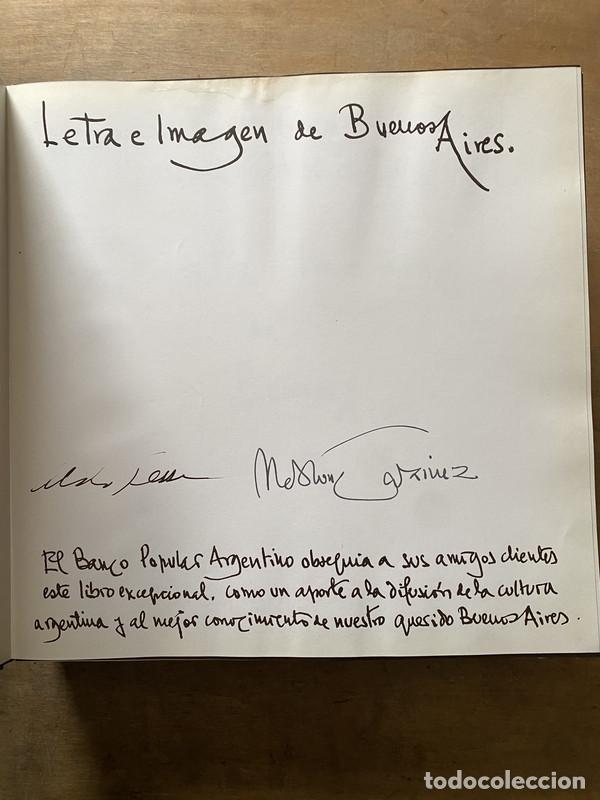 Letra e Imagen de Buenos Aires.
El Banco Popular Argentino obsequia a sus amigos clientes
este libro excepcional, como un aporte a la difusión de la cultura
argentina y al mejor conocimiento de nuestro querido Buenos Aires.
todocoleccion